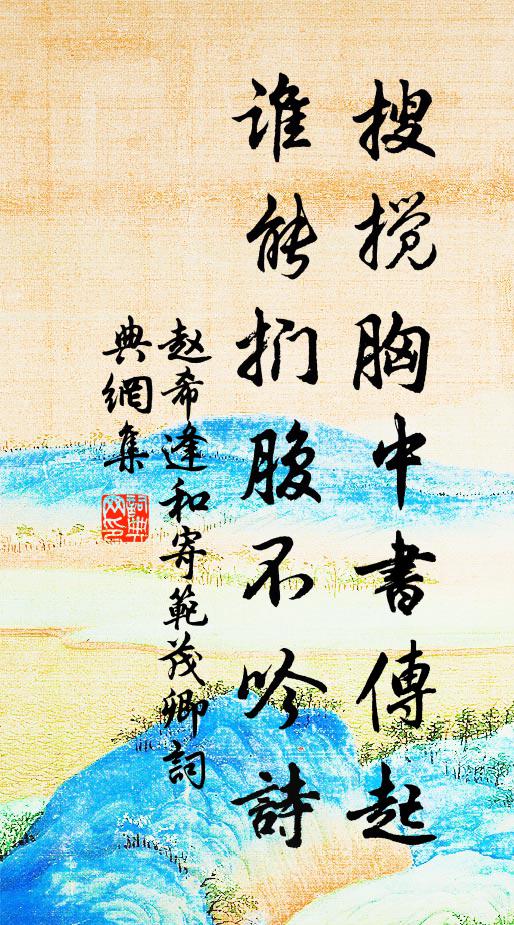 搜搅胸中書傳起
谁能捫腹不吟詩
赵希逢和寄範茂卿詞
典網集
詞典